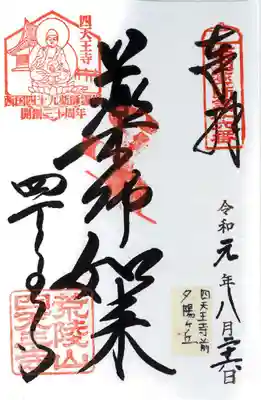 奉拝
令和元年八月二十六日
四天王寺前
夕陽ヶ丘
薬師如来
四天王寺
四天王寺
西国四十九薬師霊場
開創三十周年
荒陵山
四天王寺